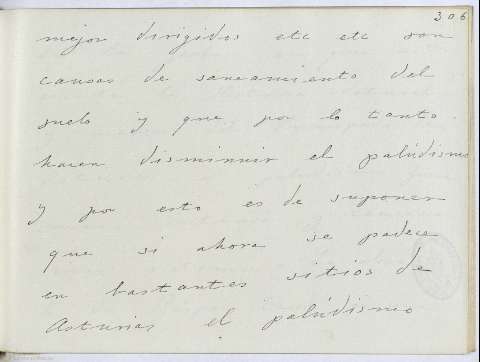 306
mejor dirigidos etc etc son
causas de saneamiento del
suelo y que por lo tanto
hacen disminuir el palúdismo
y por esto es de suponer
que si ahora se padece
en bastantes sitios de
Asturias el palúdismo